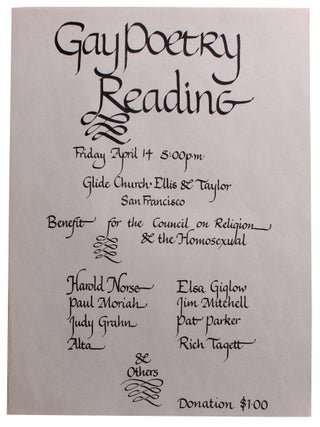 Gay Poetry
Reading
Friday April 14 8:00pm.
Glide Church · Ellis & Taylor
San Francisco
Benefit for the Council on Religion
& the Homosexual
Harold Norse Elsa Giglow
Paul Moriah Jim Mitchell
Judy Grahn Pat Parker
Alta Rich Tagett
&
Others
Donation $1.00